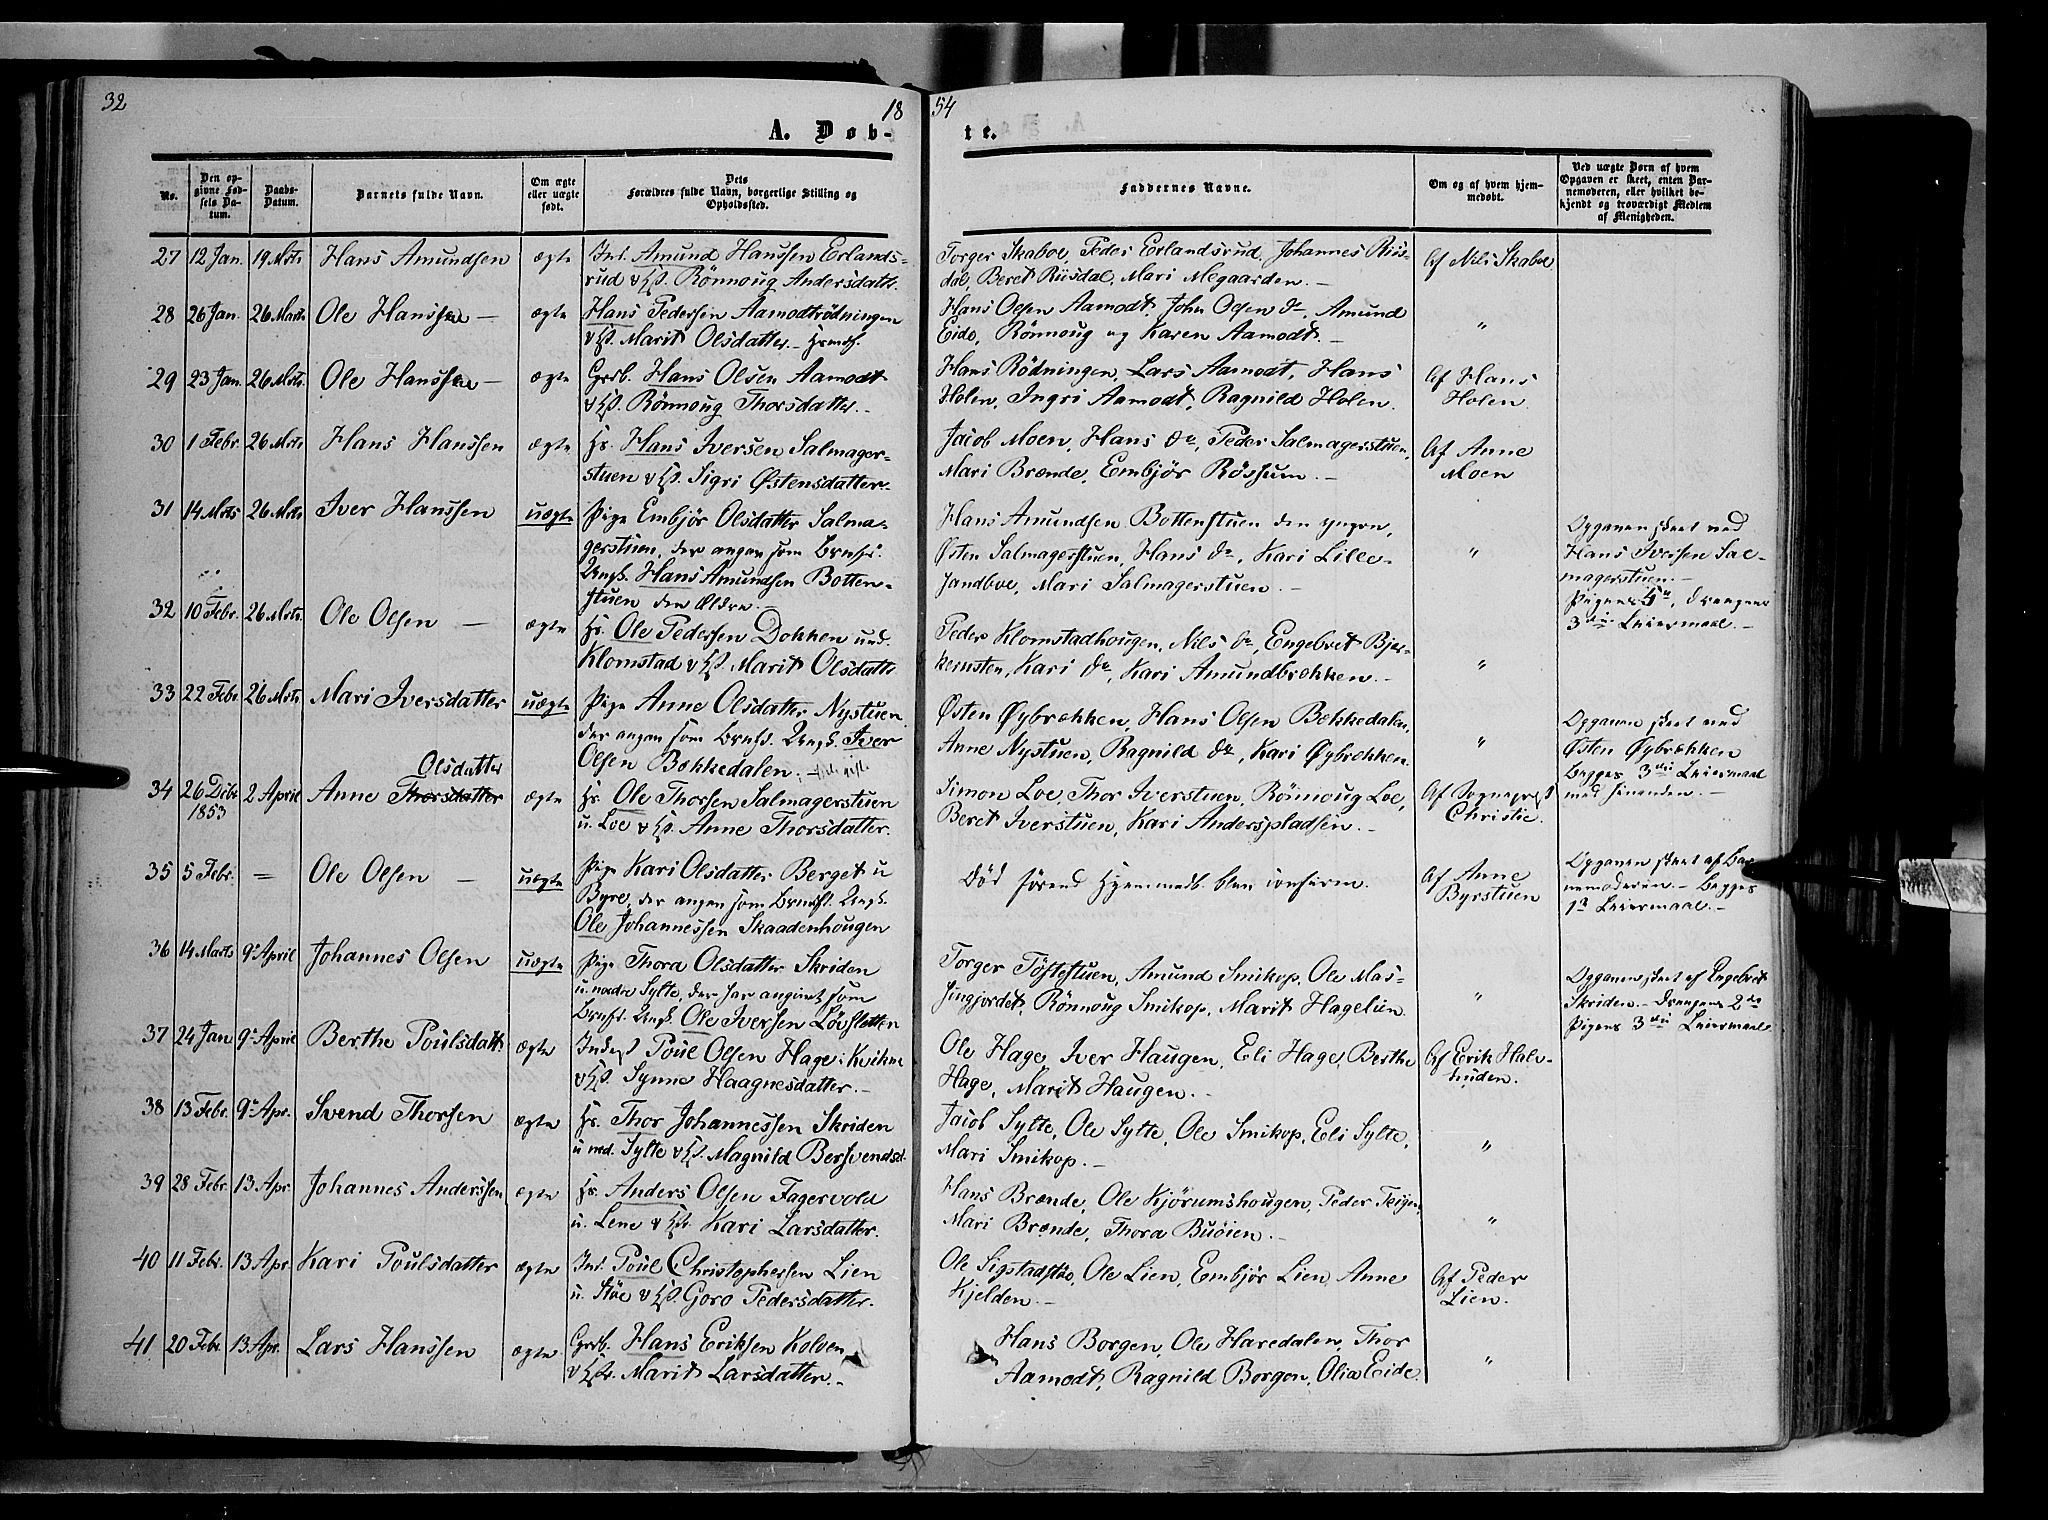 32
18
54
A. Døb-
te.
No.
Den op-
givne Fød-
sels Da-
tum.
Daabs-
Datum.
Barnets fulde Navn.
Om ægte
eller uægte
født.
Dets
Forældres fulde Navn, borgerlige Stilling og
Opholdssted.
Faddernes Navne.
Om og af hvem hjem-
medøbt.
Ved uægte Børn af hvem
Opgaven er skeet, enten Bar-
nemoderen, eller hvilket be-
kjendt og troværdigt Medlem
af Menigheden.
27 12 Jan. 19 Mrts Hans Amundsen ægte Ind. Amund Hanssen Erlands-
rud v K. Rönnoug Andersdatt.
Torger Skaboe, Peder Erlandsrud, Johannes Riis-
dal, Beret Riisdal, Mari Megaarden. —
Af Nils Skaboe
28 26 Jan. 26 Marts Ole Hanssen — ægte Hans Pedersen Aamodtrödningen
v K. Marit Olsdatter. — Hrmd.
Hans Olsen Aamodt, John Olsen do, Amund
Eide, Rönnoug og Karen Aamodt. —
"
29 23 Jan. 26 Mrts. Ole Hanssen — ægte Grb. Hans Olsen Aamodt
v K. Rönnoug Thorsdatter. —
Hans Rödningen, Lars Aamodt, Hans
Holen, Ingri Aamodt, Ragnild Holen.
Af Hans
Holen.
30 1 Febr. 26 Mrts Hans Hanssen ægte Hs. Hans Iversen Salmager-
stuen v K. Sigri Østensdatter.
Jacob Moen, Hans do, Peder Salmagerstuen,
Mari Brænde, Embjør Røssum. —
Af Anne
Moen
31 14 Mrts 26 Mrts Iver Hanssen uægte Pige Embjør Olsdatter Salma-
gerstuen, der angav som Brnfr.
Ungk. Hans Amundsen Botten-
stuen den Ældre. —
Hans Amundsen Bottenstuen den yngre,
Østen Salmagerstuen, Hans do, Kari Lille-
Jandboe, Mari Salmagerstuen. —
"
Opgaven skeet ved
Hans Iversen Sal-
magerstuen. —
Pigens 5te, Drengens
3die Leiermaal. —
32 10 Febr. 26 Mrts. Ole Olsen — ægte Hs. Ole Pedersen Dokken und.
Klomstad v K. Marit Olsdatt.
Peder Klomstadhougen, Nils do, Engebret Bjer-
kernsten, Kari do, Kari Amundbrækken. —
"
33 22 Febr 26 Mrts Mari Iversdatter uægte Pige Anne Olsdatter Nystuen,
der angav som Brnfd. Ungk. Iver
Olsen Bækkedalen. —
Østen Øybrækken, Hans Olsen Bækkedalen,
Anne Nystuen, Ragnild do, Kari Øybrækken.
"
Opgaven skeet ved
Østen Øybrækken
Begges 3die Leiermaal
med hinanden. —
Olsdatter
34 26 Dcbr 1853 2 April Anne Thorsdatter ægte Hs. Ole Thorsen Salmagerstuen
u. Loe v K. Anne Thorsdatter.
Simon Loe, Thor Iverstuen, Rönnoug Loe,
Beret Iverstuen, Kari Anderspladsen. —
Af Sognepræst
Christie.
35 5 Febr. = Ole Olsen — uægte Pige Kari Olsdatter Berget u
Byre, der angav som Brnfd. Ungk.
Ole Johannessen Skaadenhougen
Död förend Hjemmedb. blev confirm.
Af Anne
Byrstuen
Opgaven skeet af Bar-
nemoderen. — Begges
1ste Leiermaal. —
36 14 Marts 9de April Johannes Olsen uægte Pige Thora Olsdatter Skriden
u. nedre Sylte, der har angivet som
Brnfd. Ungk. Ole Iversen Løvsletten
Torger Töftestuen, Amund Smikop, Ole Mas-
singjordet, Rönnoug Smikop, Marit Hagelien.
"
Opgaven skeet af Engebret
Skriden. — Drengens 2de
Pigens 3die Leiermaal
37 24 Jan 9de April Berthe Poulsdatt. ægte Inderst Poul Olsen Hage i Kvikne
v K. Synne Haagnesdatter. —
Ole Hage, Iver Haugen, Eli Hage, Berthe
Hage, Marit Haugen. —
Af Erik Hals-
huden.
38 13 Febr. 9de Apr. Svend Thorsen ægte Hs. Thor Johannessen Skriden
u ned. Sylte v K. Magnild Bersvendsd.
Jacob Sylte, Ole Sylte, Ole Smikop, Eli Sylte,
Mari Smikop. —
"
39 28 Febr. 13 Apr. Johannes Anderssen ægte Hs. Anders Olsen Fagervold
u. Lene v K. Kari Larsdatter.
Hans Brænde, Ole Kjörumshougen, Peder Teigen,
Mari Brænde, Thora Buöien. —
"
40 11 Febr. 13 Apr. Kari Poulsdatter ægte Ind. Poul Christophersen Lien
u. Stöe v K. Goro Pedersdatter.
Ole Sigstadstöe, Ole Lien, Embjør Lien, Anne
Kjelden. —
Af Peder
Lien.
41 20 Febr. 13 Apr. Lars Hanssen ægte Grb. Hans Eriksen Kolven
v K. Marit Larsdatter. —
Hans Borgen, Ole Haredalen, Thor
Aamodt, Ragnild Borgen, Olia Eide.
"